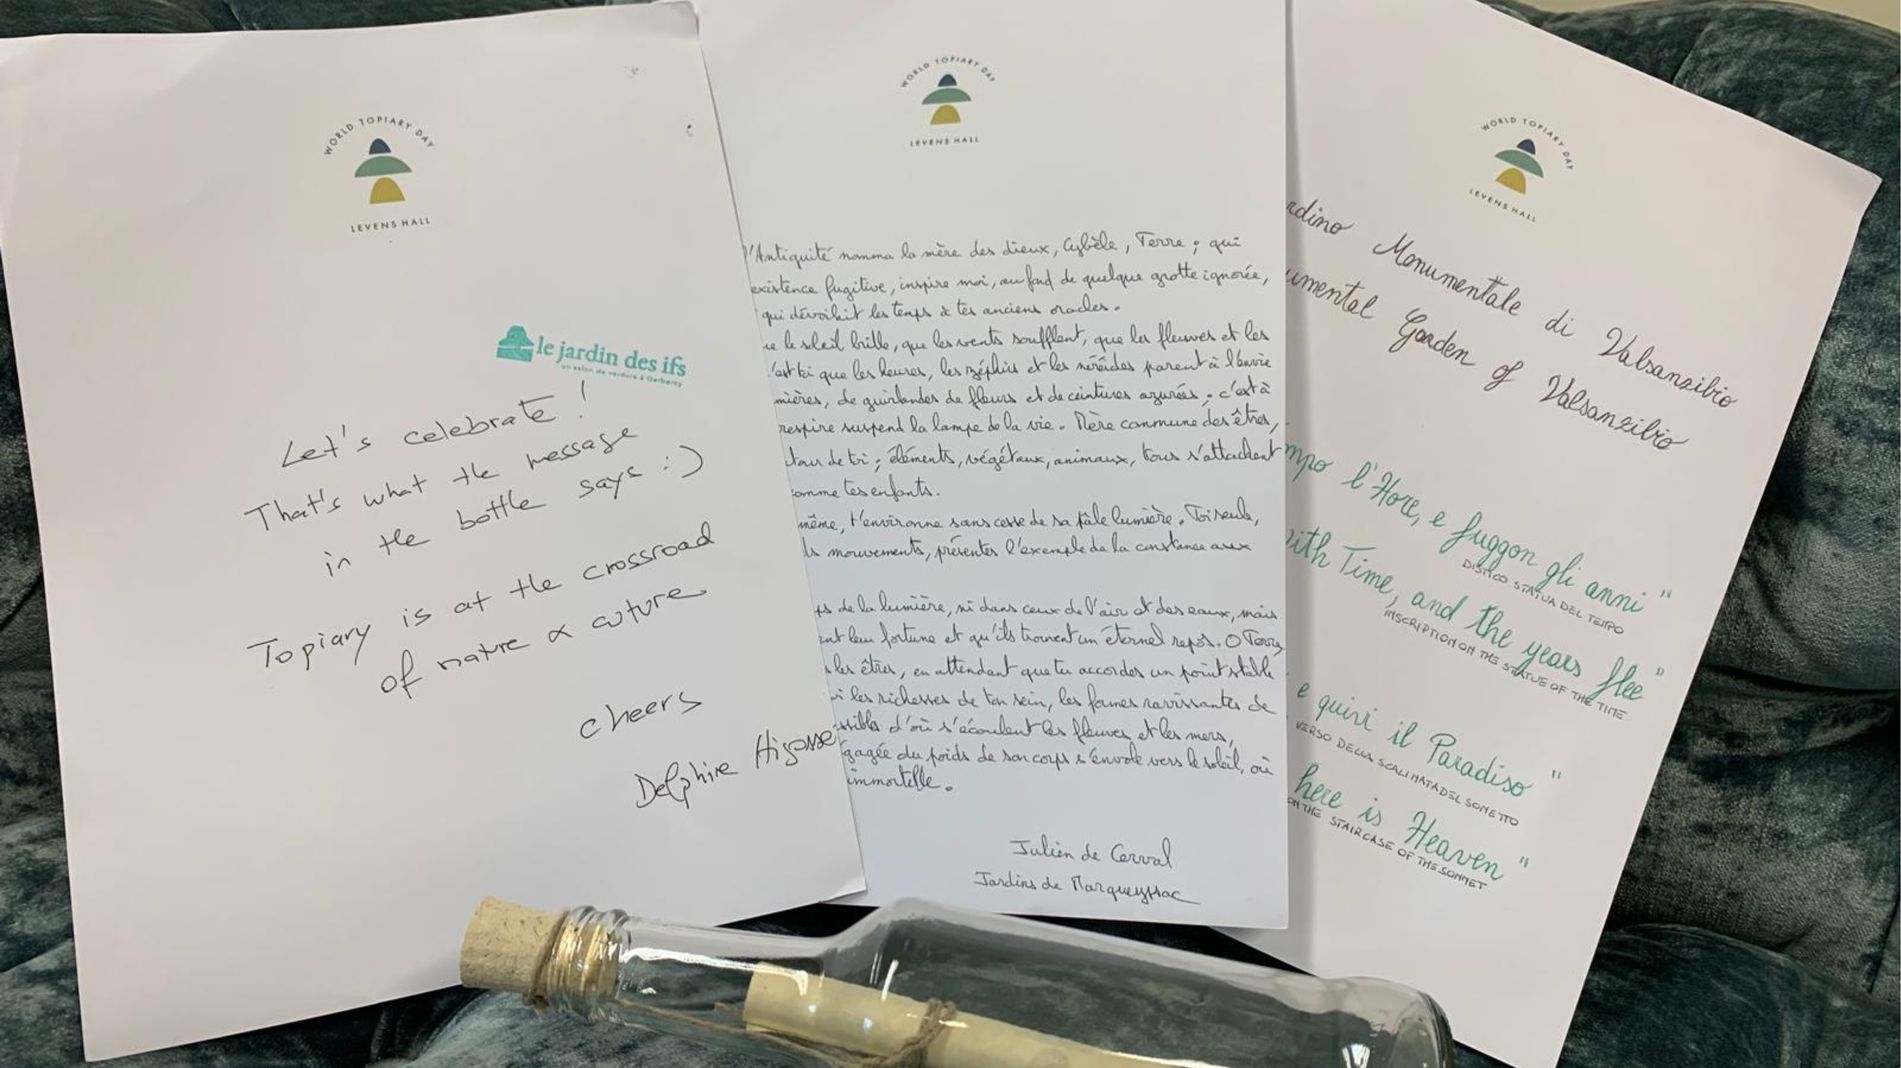 WORLD TOPIARY DAY
LEVENS HALL
le jardin des ifs
un salon de verdure à Gerberoy
Let's celebrate!
That's what the message
in the bottle says :)
Topiary is at the crossroad
of nature & cuture
cheers
Delphine Higonse
WORLD TOPIARY DAY
LEVENS HALL
l'Antiquité nomma la mère des dieux, Cybèle, Terre ; qui
existence fugitive, inspire moi, au fond de quelque grotte ignorée,
qui dévoilait les temps à tes anciens oracles.
ue le soleil brille, que les vents soufflent, que les fleuves et les
c'est toi que les heures, les zéphirs et les néréides parent à l'envie
mières, de guirlandes de fleurs et de ceintures azurées ; c'est à
respire suspend la lampe de la vie. Mère commune des êtres,
utour de toi ; éléments, végétaux, animaux, tous s'attachent
comme tes enfants.
même, t'environne sans cesse de sa pâle lumière. Toi seule,
ls mouvements, présentes l'exemple de la constance aux
ps de la lumière, ni dans ceux de l'air et des eaux, mais
ent leur fortune et qu'ils trouvent un éternel repos. O Terre,
les êtres, en attendant que tu accordes un point stable
i les richesses de ton sein, les formes ravissantes de
ssibles d'où s'écoulent les fleuves et les mers,
gagée du poids de son corps s'envole vers le soleil, où
immortelle.
Julien de Cerval
Jardins de Marqueyssac
WORLD TOPIARY DAY
LEVENS HALL
rdino Monumentale di Valsanzibio
umental Garden of Valsanzibio
mpo l'Hore, e fuggon gli anni"
DISTICO STATUA DEL TEMPO
with Time, and the years flee"
INSCRIPTION ON THE STATUE OF THE TIME
e quivi il Paradiso"
VERSO DELLA SCALINATA DEL SONETTO
here is Heaven"
ON THE STAIRCASE OF THE SONNET